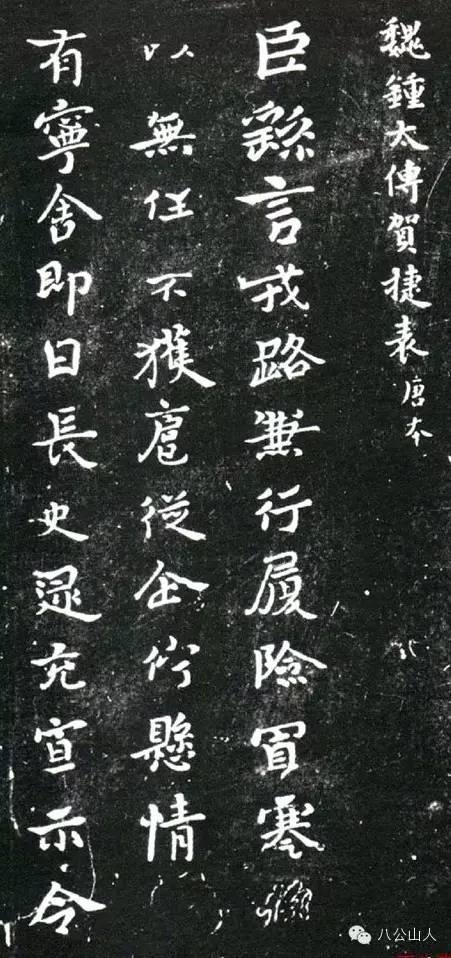 魏鍾太傅賀捷表 唐本
臣繇言戎路兼行履險冒寒
以無任不獲扈從企佇懸情
有寧舍即日長史逯充宣示令
八公山人